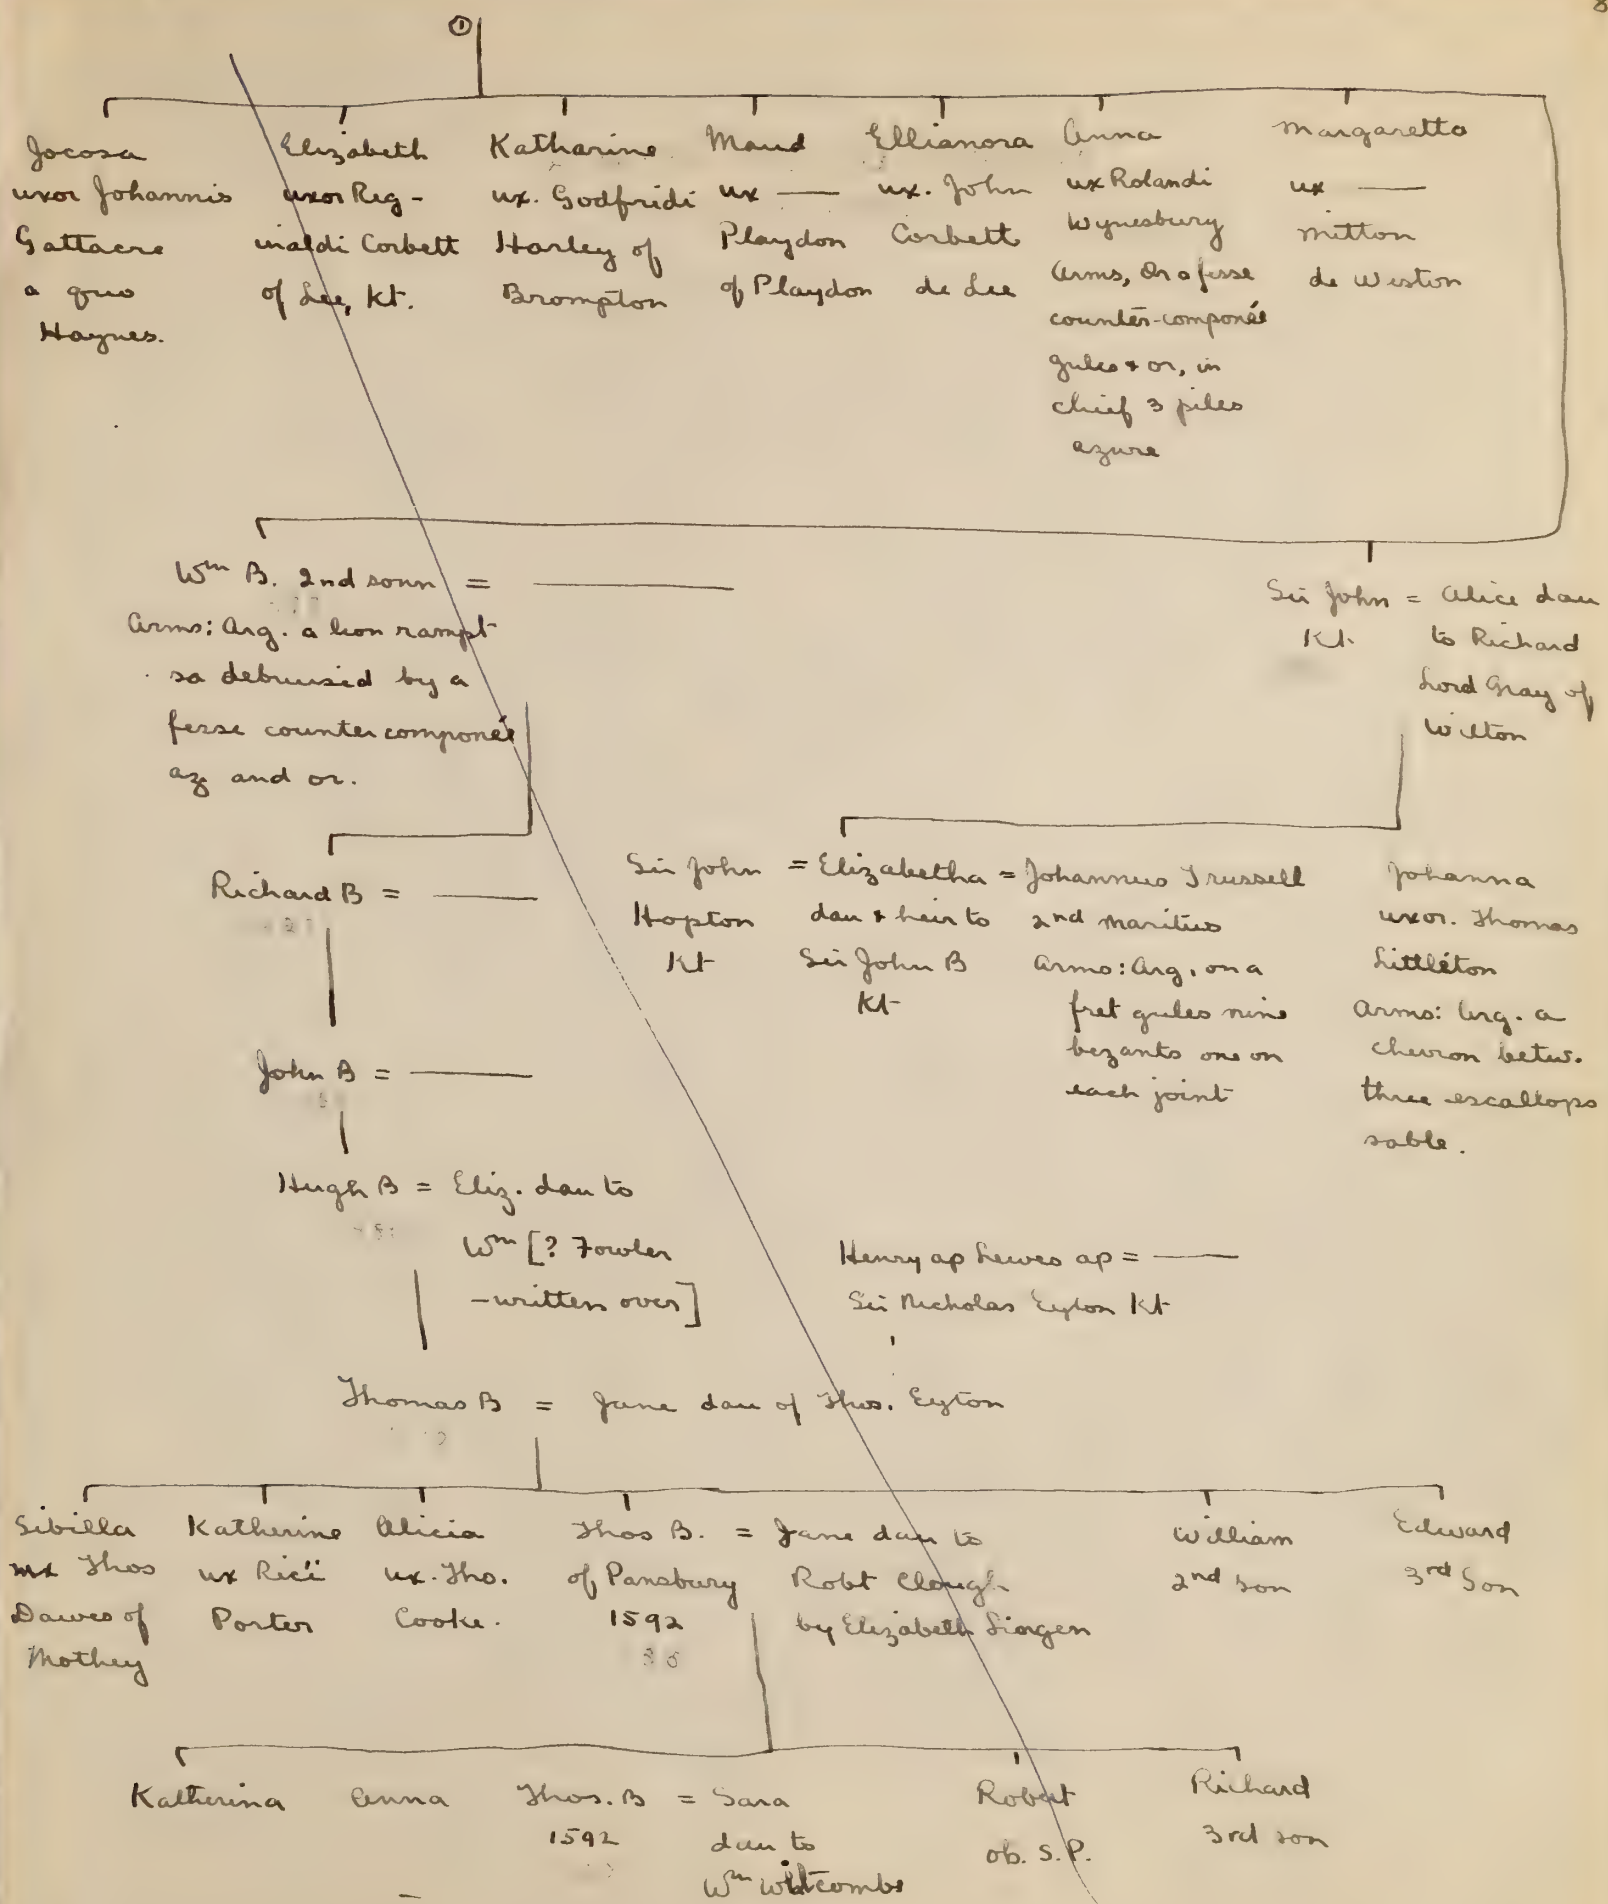 ①
8
Jocosa
uxor Johannis
Gattacre
a quo
Haynes.
Elizabeth
uxor Reg-
inaldi Corbett
of Lee, Kt.
Katharine
ux. Godfridi
Harley of
Brompton
Maud
ux ——
Playdon
of Playdon
Ellianora
ux. John
Corbett
de Lee
Anna
ux Rolandi
Wynesbury
Arms, Or a fesse
counter-componée
gules & or, in
chief 3 piles
azure
Margaretta
ux ——
Mitton
de Weston
Wm B. 2nd sonn = ——
Arms: Arg. a lion rampt
sa debruised by a
fesse counter componée
az and or.
Sir John = Alice dau
Kt. to Richard
Lord Gray of
Wilton
Richard B = ——
Sir John =
Hopton
Kt
Elizabetha =
dau & heir to
Sir John B
Kt
Johannus Trussell
2nd maritus
Arms: Arg, on a
fret gules nine
bezants one on
each joint
Johanna
uxor. Thomas
Littleton
Arms: Arg. a
chevron betw.
three escallops
sable.
John B = ——
Hugh B = Eliz. dau to
Wm [? Fowler
-written over]
Henry ap Lewes ap = ——
Sir Nicholas Eyton Kt
Thomas B = Jane dau of Thos. Eyton
Sibilla
ux Thos
Dawes of
Mothey
Katherine
ux Rici
Porter
Alicia
ux. Tho.
Cooke.
Thos B. =
of Pansbury
1592
Jane dau to
Robt Clough
by Elizabeth
William
2nd son
Edward
3rd Son
Katherina
Anna
Thos. B =
1592
Sara
dau to
Wm Witcombe
Robert
ob. S.P.
Richard
3rd son